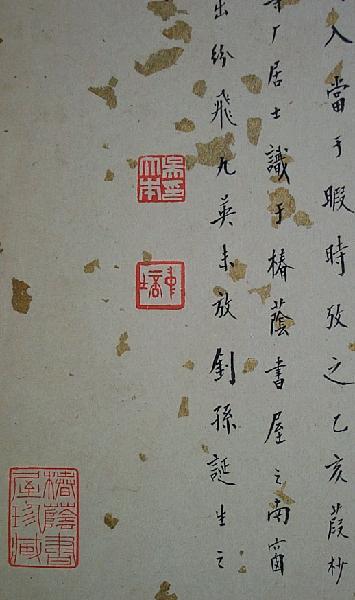 入當于暇時攷之乙亥葭杪
居士識于椿蔭書屋之南窗
出紛飛九英未放劍孫誕生之
椿蔭書屋珍藏